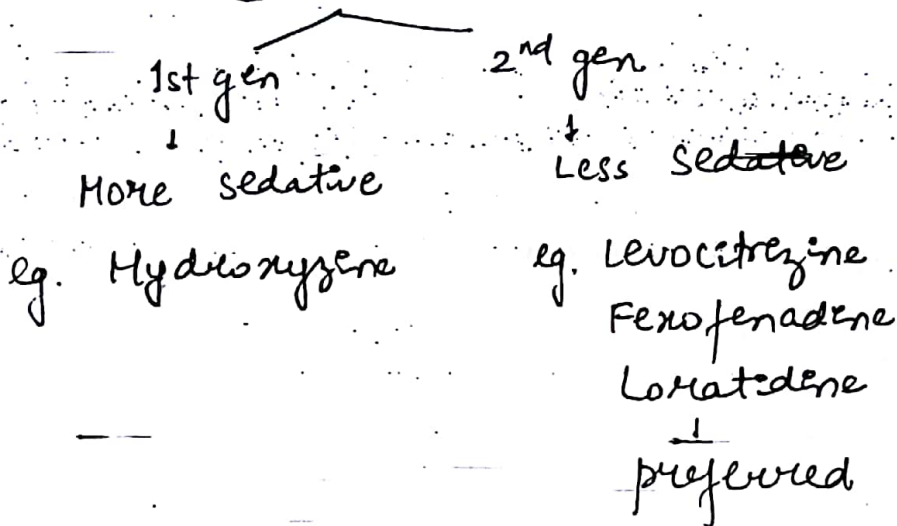 1st gen
More sedative
eg. Hydroxyzine
2nd gen
Less sedative
eg. Levocitrezine
Fexofenadine
Loratidine
preferred